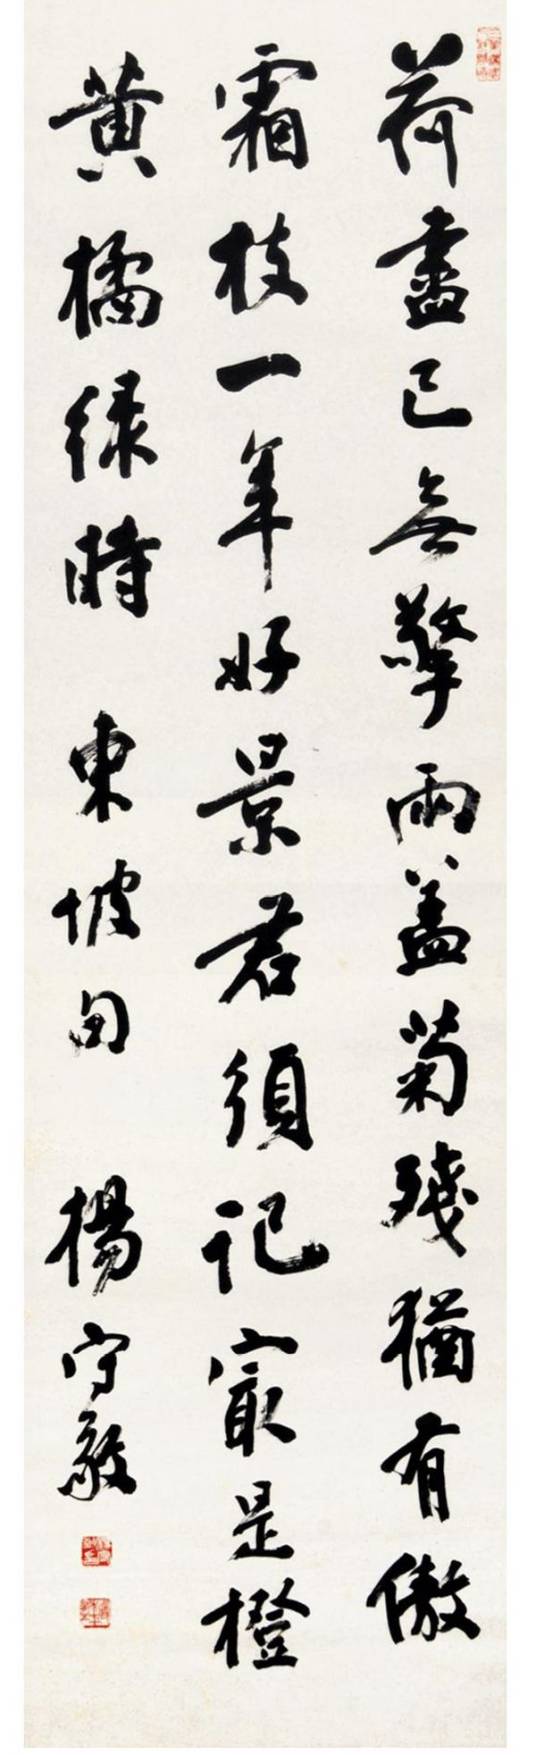 荷盡已無擎雨蓋菊殘猶有傲
霜枝一年好景君須記寂是橙
黄橘緑時 東坡句 楊守敬